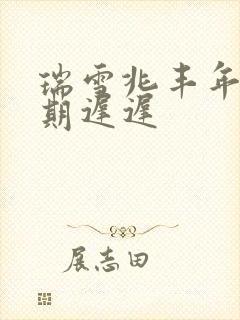 瑞雪兆丰年
期遲遲
展志田